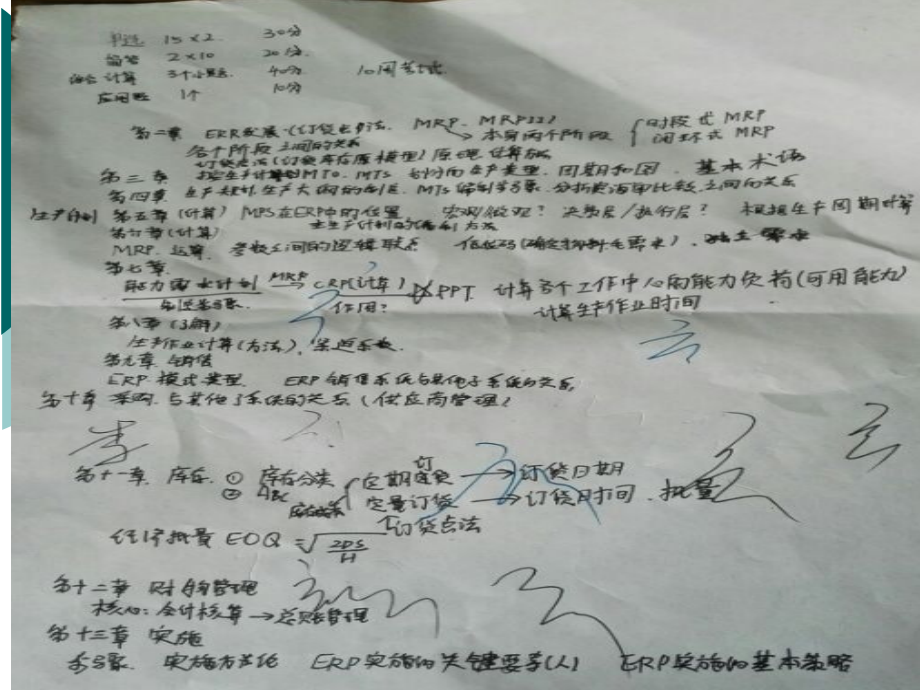 单选 15×2. 30分
简答 2×10 20分.
综合计算 3个小题. 40分 10周考试
应用题 1个 10分
第二章 ERR发展(订货点法. MRP. MRPII) 本身两个阶段 时段式 MRP
闭环式 MRP
各个阶段之间的关系
订货点法(订货库存原模型)原理.计算
第三章 MTO. MTS 生产类型. 周期和图. 基本术语
第四章 生产规划.生产大纲的 MTS 编制步骤. 之间的关系
第五章(计算) MPS在ERP中的位置 宏观/微观? 决策层/执行层? 根据生产周期计算
主生产计划的编制方法
第六章(计算)
MRP. 运算. 参数之间的逻辑联系 低位码(确定物料毛需求). 独立需求
第七章.
能力需求计划 MRP→ CRP(计算) PPT. 计算各个工作中心的能力负荷(可用能力)
作用? 计算生产作业时间
第八章(了解)
生产作业计算(方法), 紧迫系数.
第九章. 销售
ERP 模式类型. ERP 销售系统与其他子系统的关系,
第十章 采购. 与其他子系统的关系(供应商管理)
第十一章. 库存. ① 库存分类 定期订货 → 订货日期
② ABC 定量订货 → 订货时间. 批量
订货点法
经济批量 EOQ = √2DS/H
第十二章 财务管理
核心: 会计核算 → 总账管理
第十三章 实施
步骤. 实施方法论 ERP实施的关键要素(人) ERP实施的基本策略